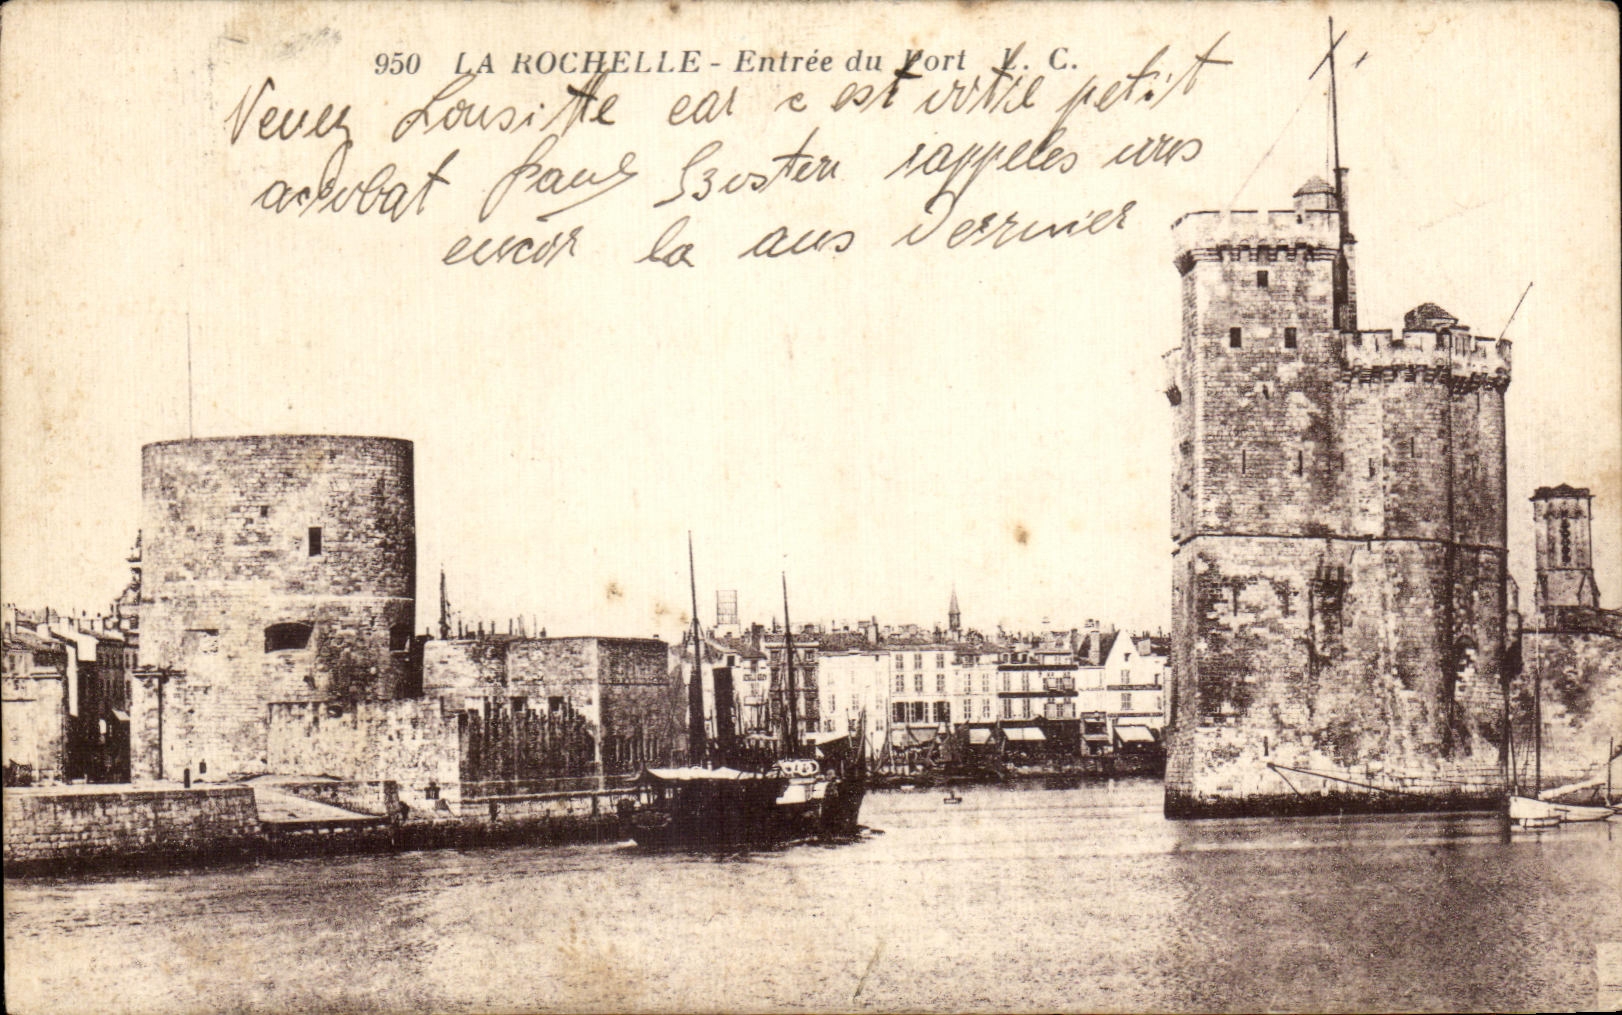 950 LA ROCHELLE - Entrée du Port L. C.
Venez Lousitte car c'est votre petit
acrobat Paul Bosten rappeles vous
encor la ans dernier